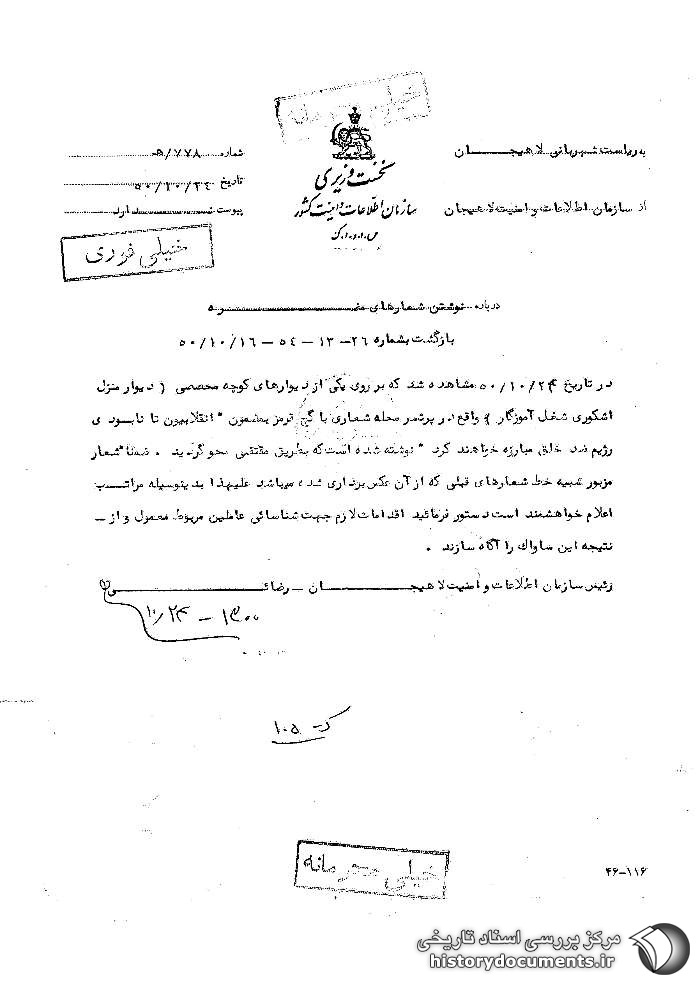 خیلی محرمانه
به ریاست شهربانی لاهیجان
نخست وزیری
شماره ۵/۷۷۸
از سازمان اطلاعات و امنیت لاهیجان
سازمان اطلاعات و امنیت کشور
تاریخ ۵۰/۱۰/۲۴
س.ا.و.ا.ک
پیوست ندارد
خیلی فوری
درباره نوشتن شعارهای مضره
بازگشت بشماره ۲۶–۱۳–۵۴–۵۰/۱۰/۱۶
در تاریخ ۵۰/۱۰/۲۴ مشاهده شد که بر روی یکی از دیوارهای کوچه محصصی ( دیوار منزل
اشکوری شغل آموزگار ) واقع در پرشسر محله شعاری با گچ قرمز بمضمون " انقلابیون تا نابودی
رژیم ضد خلق مبارزه خواهند کرد " نوشته شده است که بطریق مقتضی محو گردید . ضمنا" شعار
مزبور شبیه خط شعارهای قبلی که از آن عکس برداری شده میباشد علیهذا بدینوسیله مراتب
اعلام خواهشمند است دستور فرمائید اقدامات لازم جهت شناسائی عاملین مربوط معمول و از –
نتیجه این ساواک را آگاه سازند .
رئیس سازمان اطلاعات و امنیت لاهیجان – رضائی
۱۳۰۰ – ۱۰/۲۴
ک – ۱۰۵
خیلی محرمانه
۴۶–۱۱۶
مرکز بررسی اسناد تاریخی
historydocuments.ir